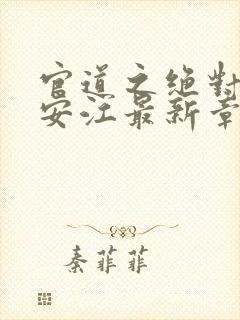 官道之绝对
安江最新章
秦菲菲